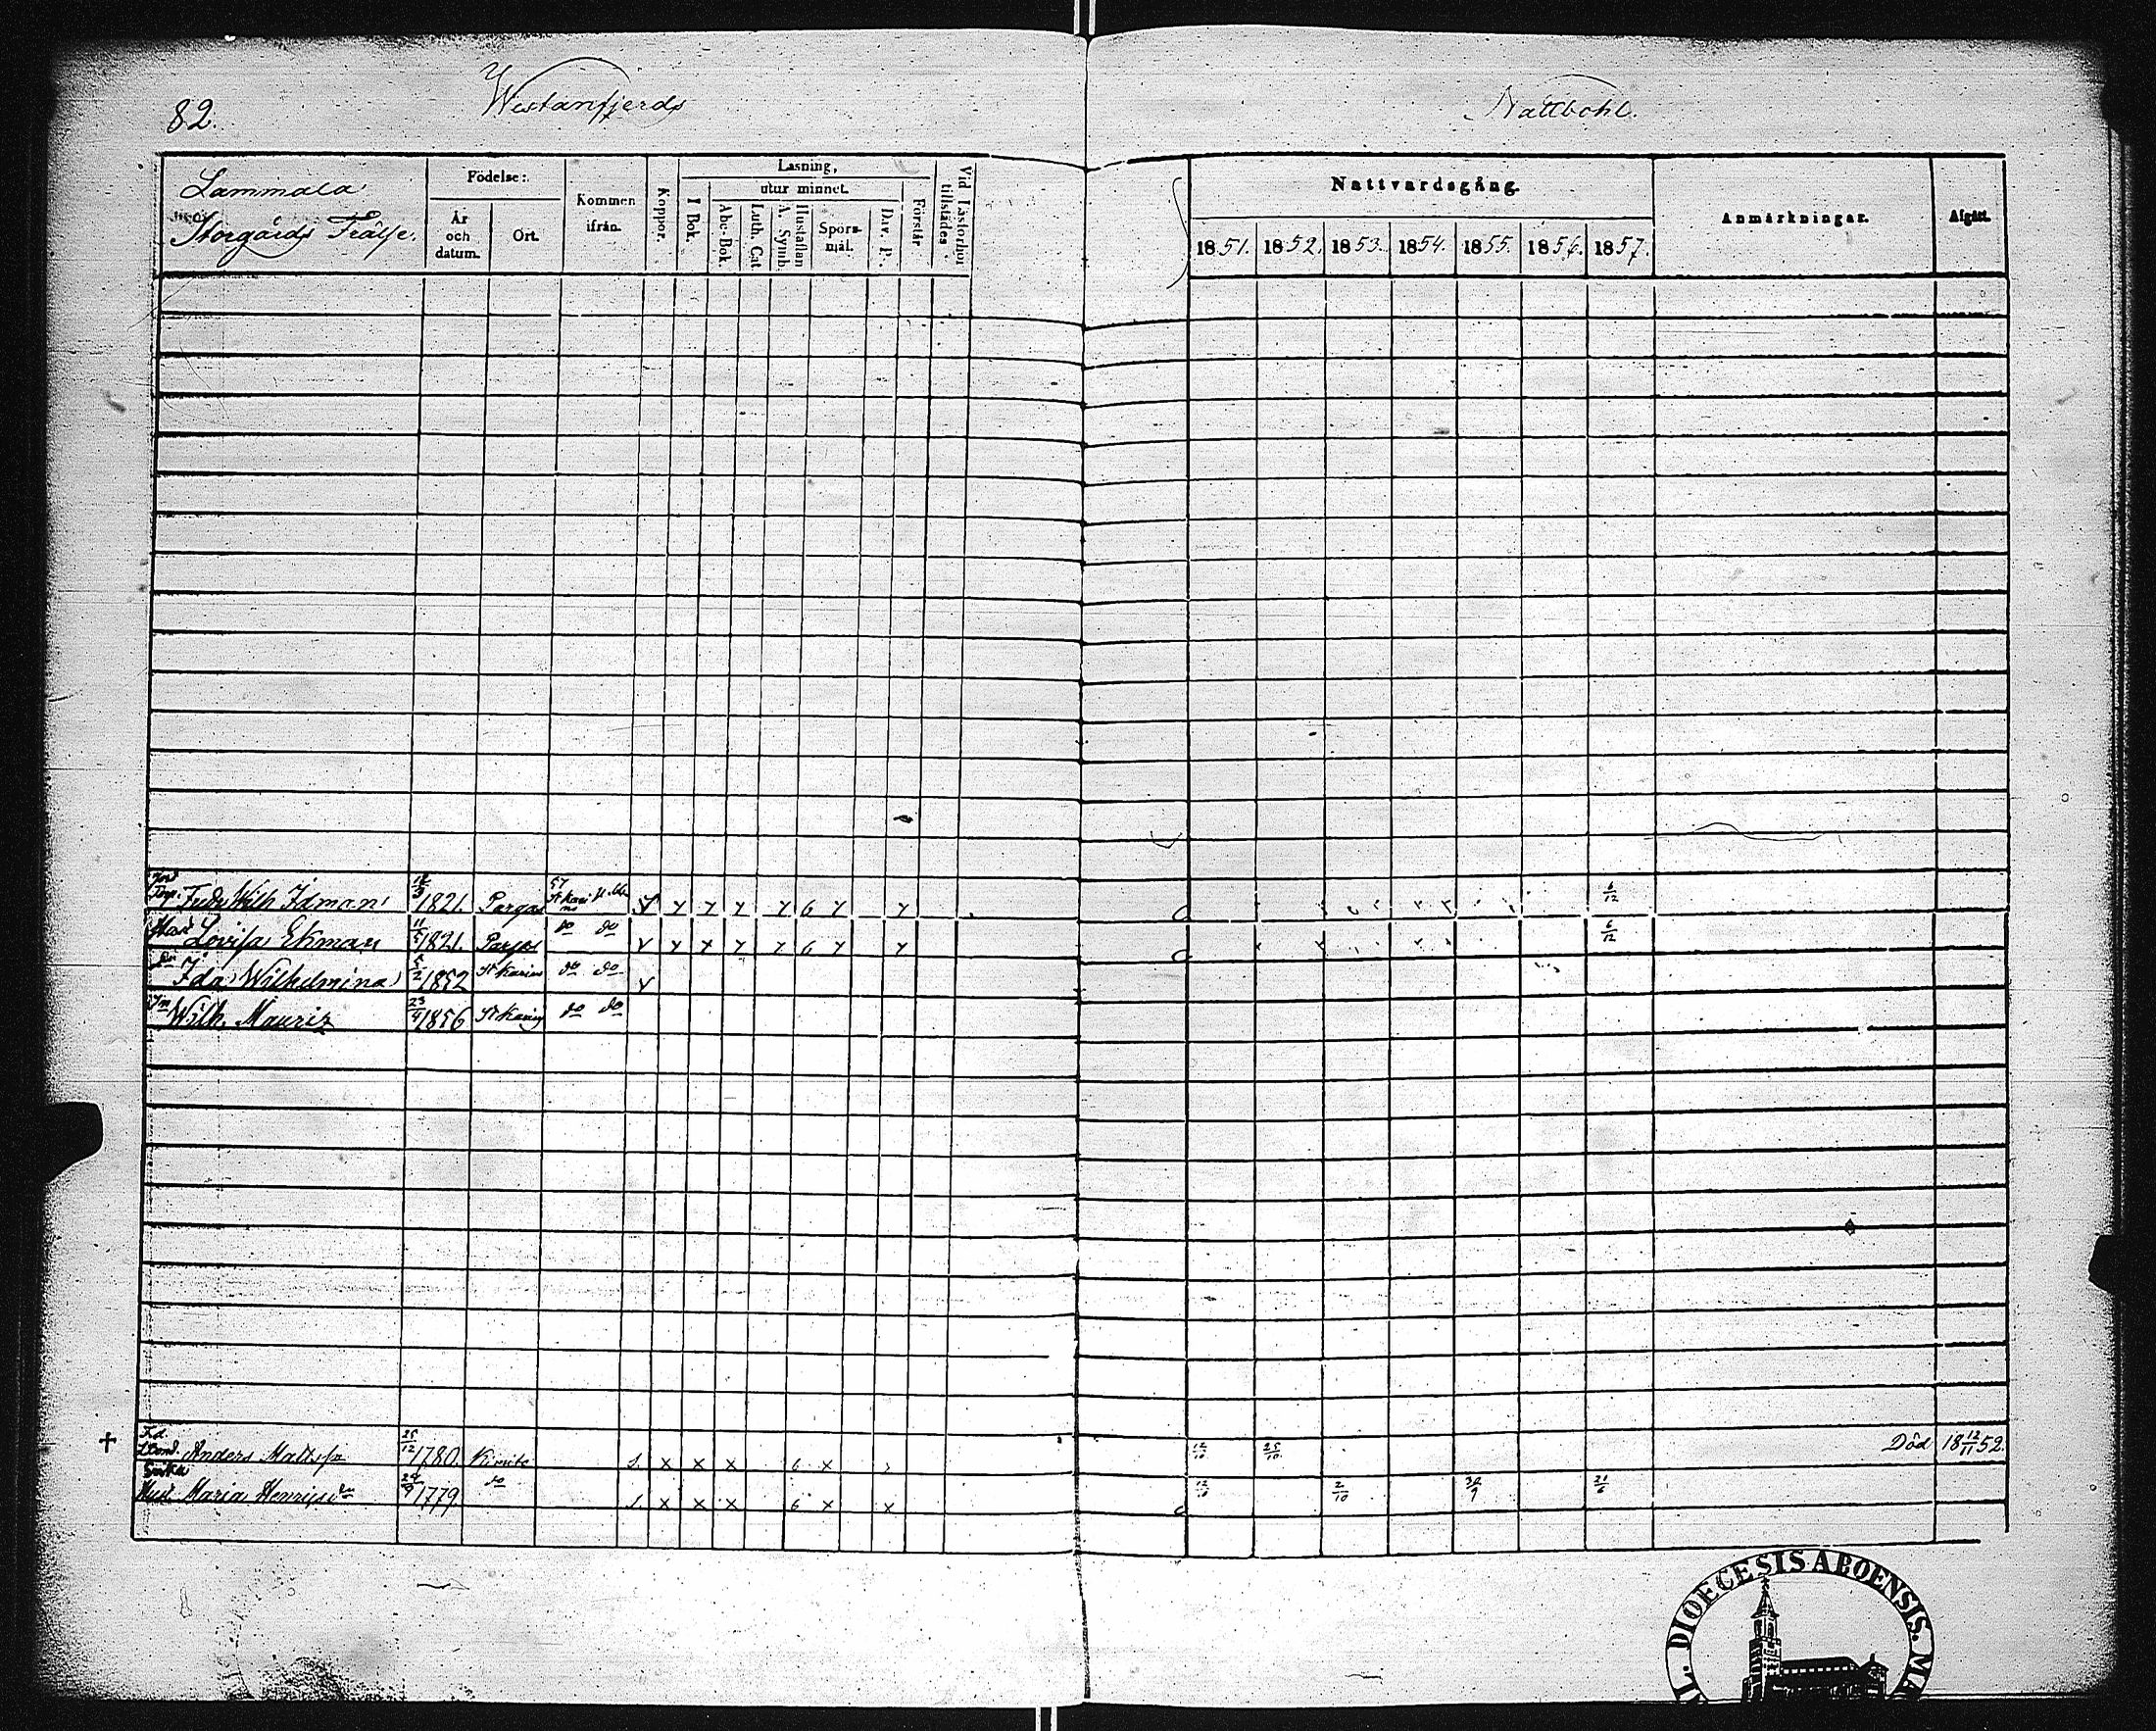 82.
Westanfjerds
Nattbohl.
Lammala
Storgårds Frälse.
Födelse:
År och datum.
Ort.
Kommen ifrån.
Koppor.
Läsning,
I Bok.
utur minnet.
Abc-Bok.
Luth. Cat.
Hustaflan A. Symb.
Spörsmål.
Dav. P.
Förstår
Vid Läsförhör tillstädes.
Nattvardsgång.
1851. 1852. 1853. 1854. 1855. 1856. 1857.
Anmärkningar.
Afgått.
Fredr Wilh Idman 1821. Pargas 57 6/12
Hust Lovisa Ekman 11/5 1821. Pargas do do 6 6/12
dr Ida Wilhelmina 5/2 1852 St Karins do do
Sn Wilh. Mauriz 23/9 1856 St Karins do do
† Anders Mattss 25/12 1780. Kimito x x x 6 x 12/10 25/10 Död 18 12/11 52.
Enka
Hust Maria Henricsdr 29/9 1779 do x x x 6 x x 12/10 2/10 30/9 21/6
DIOECESIS ABOENSIS.